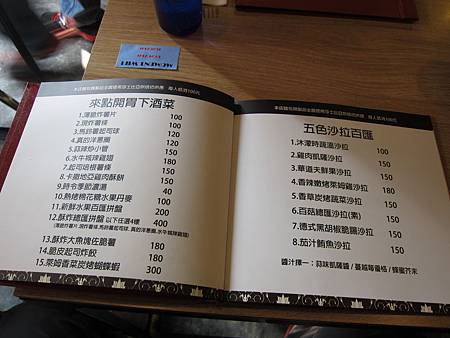 來點開胃下酒菜
1.薄脆炸薯片 100
2.現炸薯條 100
3.馬鈴薯起司球 120
4.真的洋蔥圈 120
5.蒜辣炒小管 150
6.水牛城辣雞翅 150
7.起司培根薯條 150
8.卡撒地亞雞肉酥餅 150
9.時令季節濃湯 40
10.熱烤棉花糖水果丹麥 100
11.新鮮水果百匯拼盤 200
12.酥炸總匯拼盤 以下任選4樣 400
(薄脆炸薯片,現炸薯條,馬鈴薯起司球,真的洋蔥圈,水牛城辣雞翅)
13.酥炸大魚塊佐脆薯 180
14.脆皮起司炸餃 180
15.萊姆香菜炭烤蝴蝶蝦 300
五色沙拉百匯
1.沐濛時蔬溫沙拉 100
2.雞肉凱薩沙拉 150
3.華道天鮮果沙拉 150
4.香辣嫩烤萊姆雞沙拉 150
5.香草炭烤蔬菜沙拉 150
6.百菇總匯沙拉(素) 150
7.德式黑胡椒脆腸沙拉 150
8.茄汁鮪魚沙拉 150
醬汁擇一：蒜味凱薩醬 / 蔓越莓優格 / 蜂蜜芥末